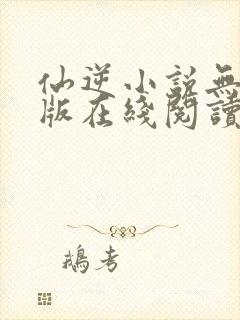 仙逆小説無
版在綫閱讀
鵝考